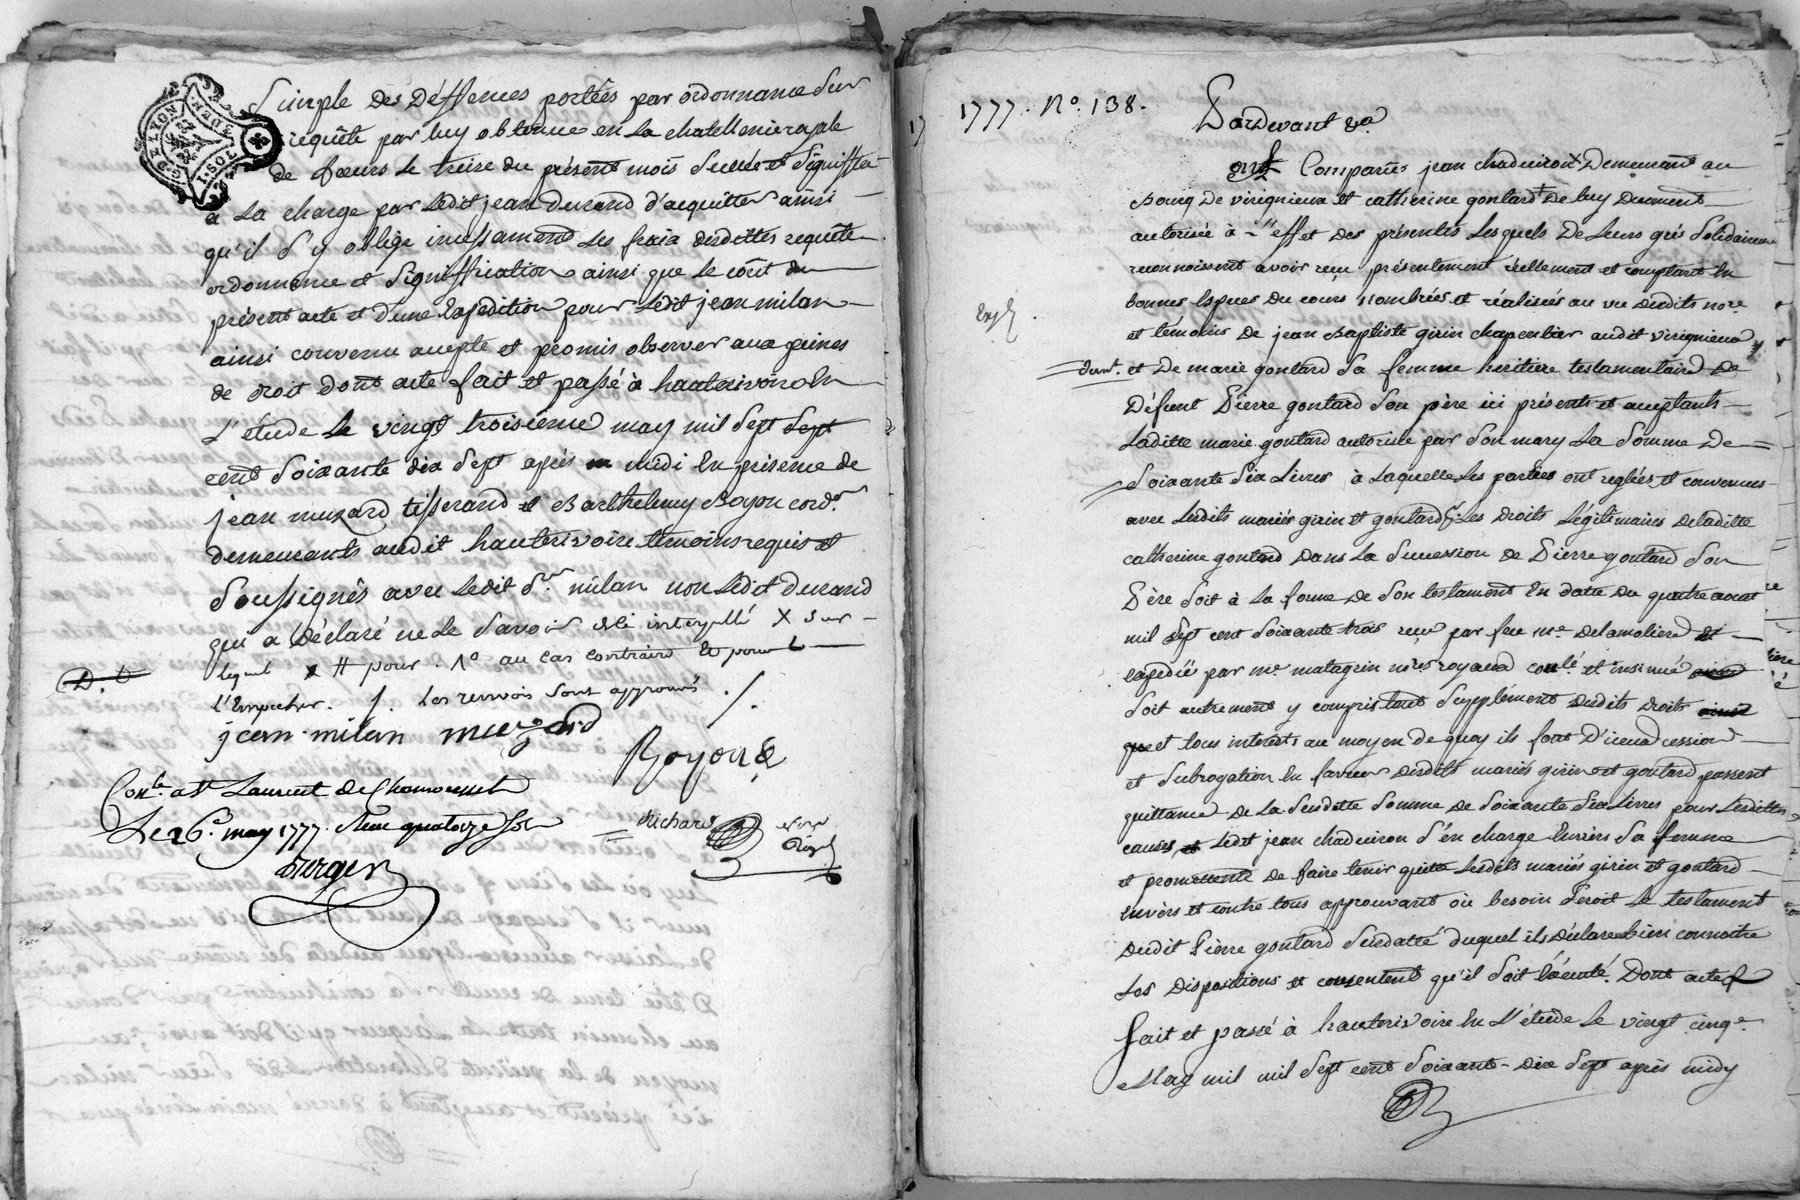 GEN. DE LYON
1. SOL
Simple des Déffences portées par ordonnance sur
requête par luy obtenue en la chatellenie royale
de feurs le treise du présent mois scellée et signiffiée
a la charge par ledit jean durand d'acquitter ainsi
qu'il s'y oblige incessamend les fraix desdittes requête
ordonnance et signiffication ainsi que le coût du
présent acte et d'une Expedition pour ledit jean milan
ainsi convenu accepté et promis observer aux peines
de droit dont acte fait et passé à hauterivoire En
L'étude le vingt troisieme may mil sept sept
cent soixante dix sept après midi En presence de
jean muzard tisserand et Barthelemy Boyon cord.r
demeurants audit hauterivoire temoins requis et
soussignés avec ledit s.r milan non ledit durand
qui a déclaré ne le savoir été interpellé X sur
lequel x # pour . 1º au cas contraire Et pour
l'Empecher. /. les renvois sont approuvés ./.
jean milan muzard
Boyon
Con.lé a S.t Laurent de Chamousset
Le 26.e may 1777. Reçu quatorze sols
Richard
1777. Nº. 138.
Pardevant &a
ont Comparus jean chaduiron X Demeurant au
Bourg de virignieux et catherine gontard + de luy duement
autorisée à l'effet des présentes lesquels de leurs grés solidairement
reconnoissent avoir reçu présentement réellement et comptant En
bonnes Espèces du cours nombrées et réalisées au vu desdits no.re
et témoins de jean Baptiste girin charpentier audit virignieux
et de marie gontard sa femme heritiere testamentaire de
Défunt Pierre gontard son père ici présents et acceptants
laditte marie gontard autorisée par son mary la somme de
soixante six livres à laquelle les parties ont reglées et convenues
avec lesdits mariés girin et gontard les droits légitimaires de laditte
catherine gontard dans la succession de Pierre gontard son
Père soit à la forme de son testament en datte du quatre aout
mil sept cent soixante trois reçu par feu m.e delamoliere et
expedié par m.e matagrin n.res royaux con.lé et insinué
soit autrement y compris tout supplément desdits droits
et tous interets au moyen de quoy ils font d'iceux cession
et subrogation En faveur desdits mariés girin et gontard passent
quittance de la susditte somme de soixante six livres pour lesdittes
causes, et ledit jean chaduiron s'en charge Envers sa femme
et promettent de faire tenir quitte lesdits mariés girin et gontard
envers et contre tous approuvant où besoin seroit le testament
dudit Pierre gontard susdatté duquel ils déclarent bien connoitre
les dispositions et consentent qu'il soit éxécuté. Dont acte
fait et passé à hauterivoire En L'étude le vingt cinq.e
May mil mil sept cent soixante-dix sept après midy